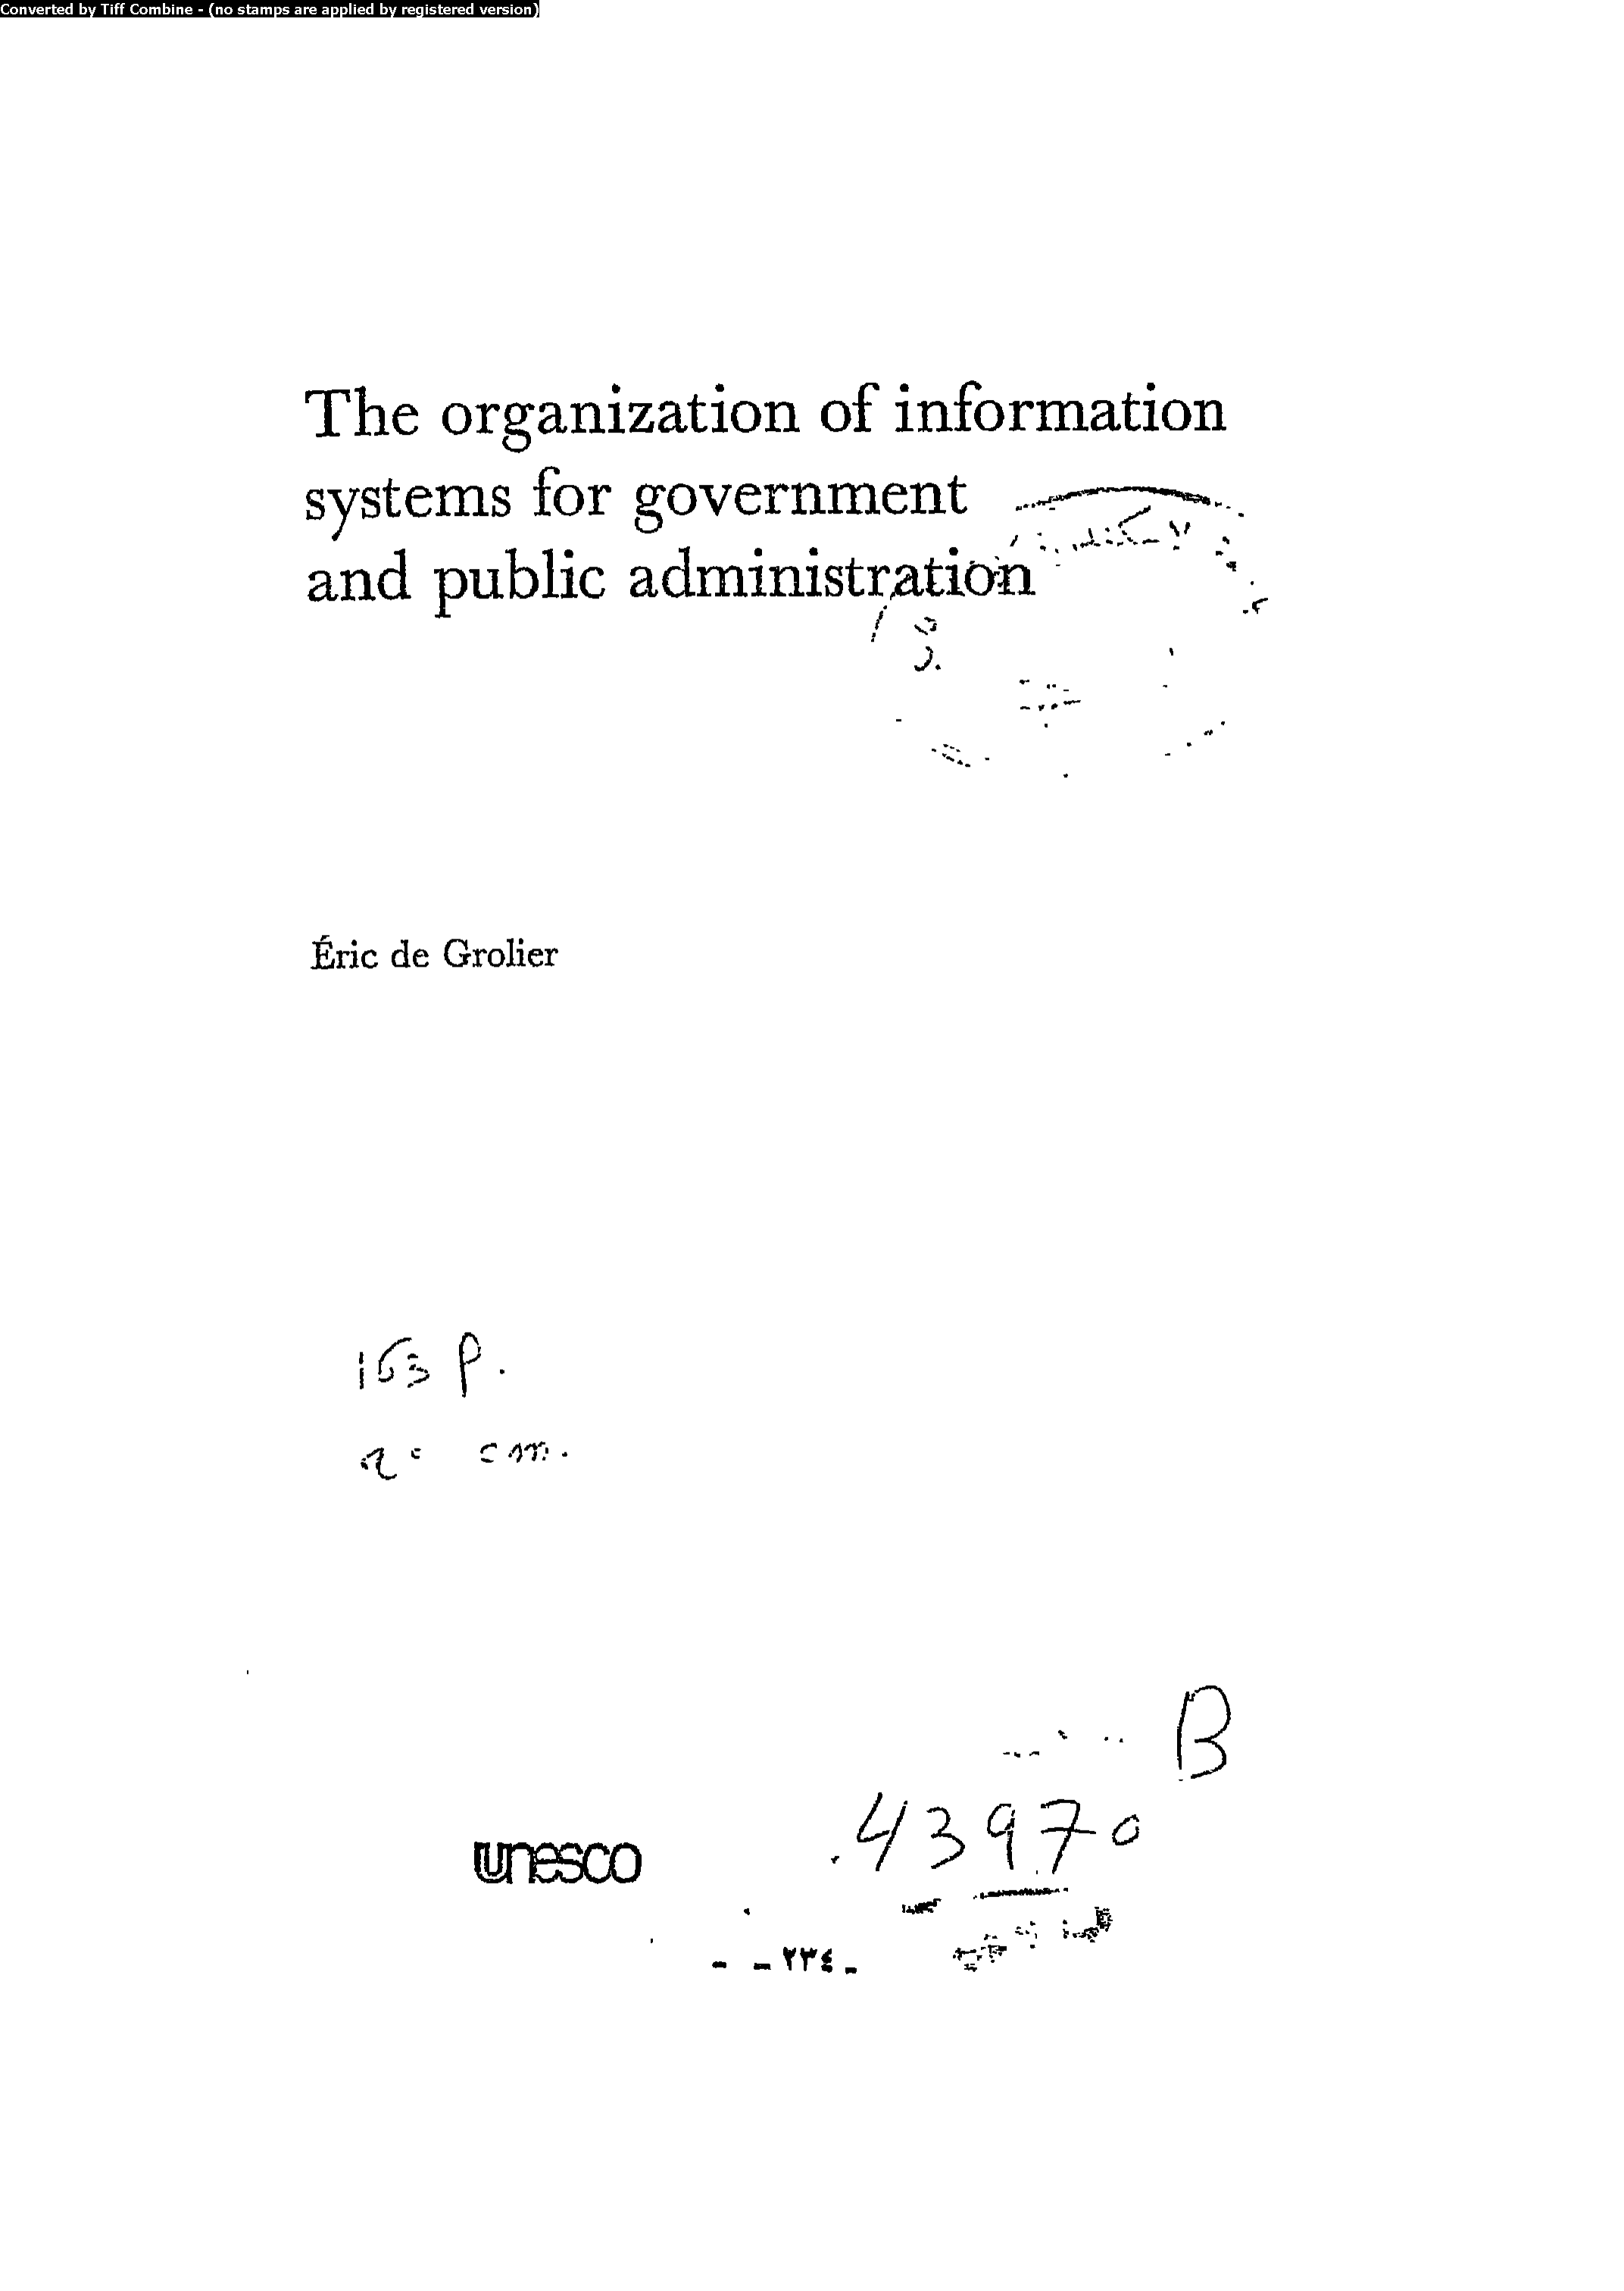 Converted by Tiff Combine - (no stamps are applied by registered version)
The organization of information
systems for government
and public administration
Éric de Grolier
163 p.
cm.
B
43970
unesco
- -٢٣٤-